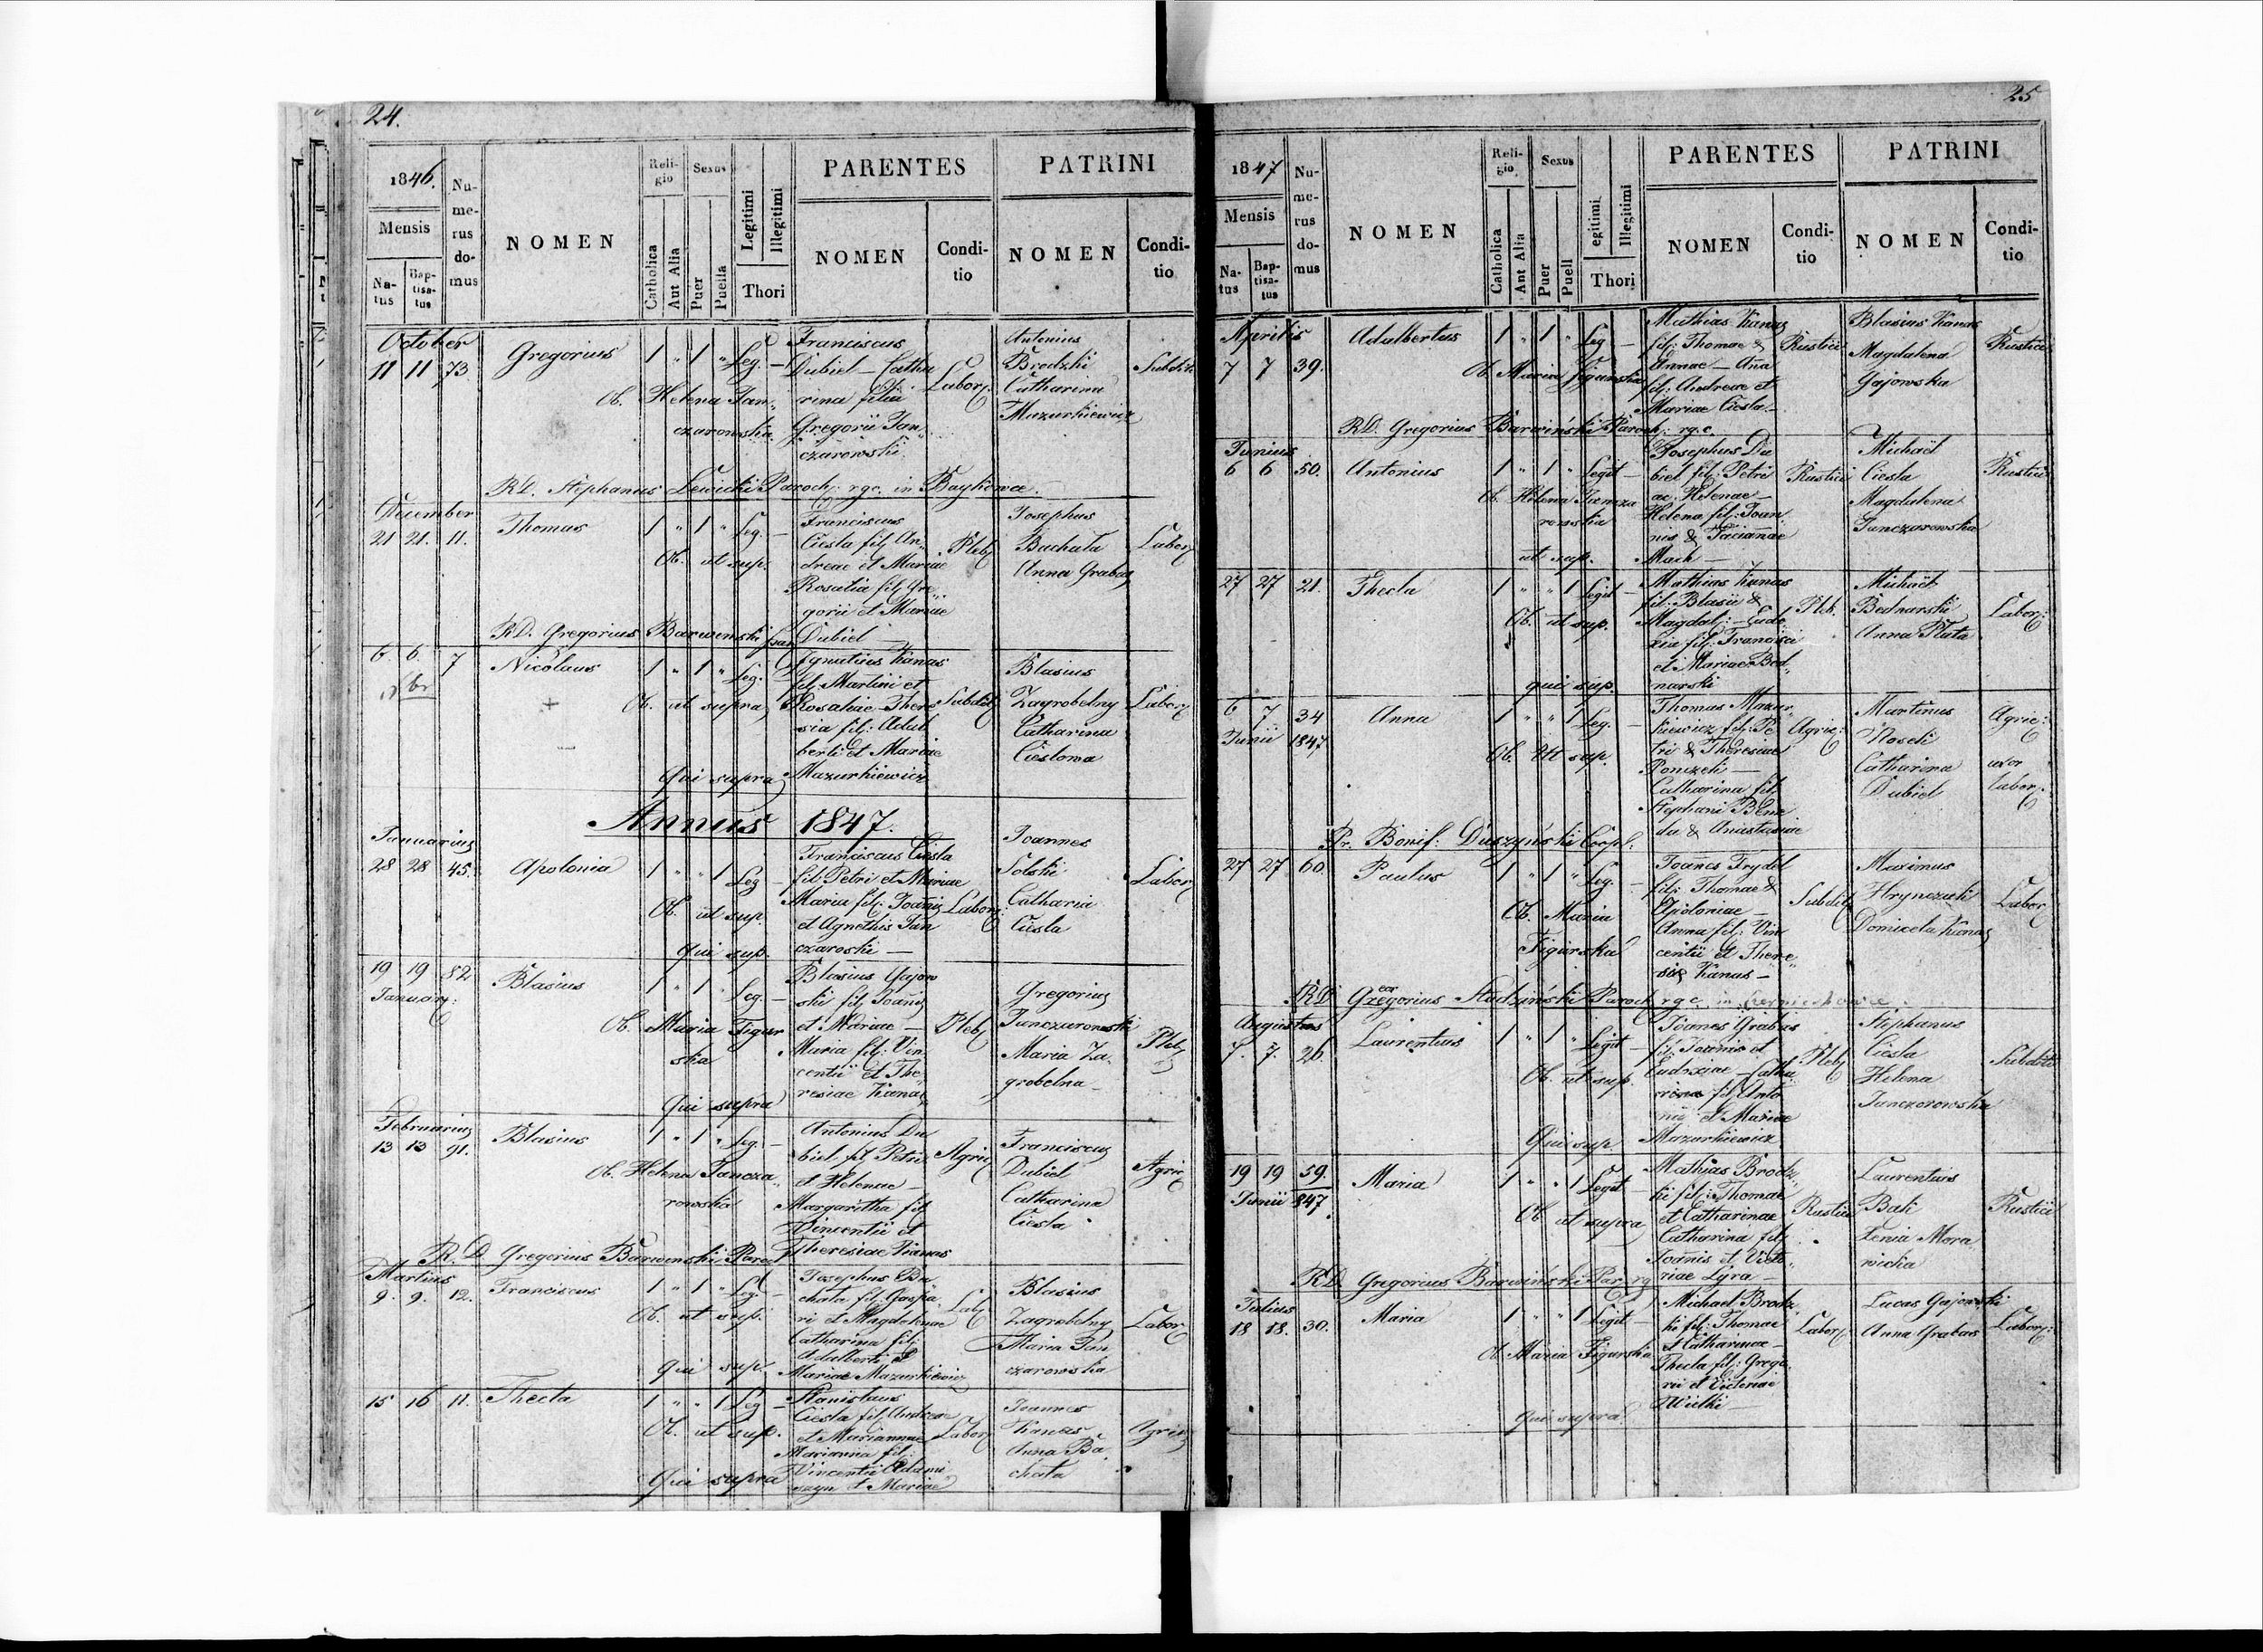 24.
1846.
Mensis
Na-
tus
Bap-
tisa-
tus
Nu-
me-
rus
do-
mus
NOMEN
Reli-
gio
Catholica
Aut Alia
Sexus
Puer
Puella
Legitimi
Illegitimi
Thori
PARENTES
NOMEN
Condi-
tio
PATRINI
NOMEN
Condi-
tio
October
11 11 73 Gregorius 1 " 1 " Leg. -
Ob. Helena Jan,,
czarowska
Franciscus
Dubiel - Catha
rina filia
Gregorii Jan
czarowski
Labor:
Antonius
Brodzki
Catharina
Mazurkiewicz
Subditi
RD. Stephanus Lewicki Paroch: rgc. in
December
21 21. 11. Thomas 1 " 1 " Leg. -
Ob. ut sup.
Franciscus
Ciesla fil: An,,
dreae et Mariae
Rosalia fil: Gre,,
gorii et Mariae
Dubiel -
Pleb:
Josephus
Bachata
Anna Grabas
Labor:
RD. Gregorius Barwenski
6. 6. 7 Nicolaus 1 " 1 " Leg.
Ob. ut supra
Ignatius Kanas
fil: Martini et
Rosaliae - There
sia fil: Adal
berti et Mariae
Mazurkiewicz
Subdit:
Blasius
Zagrobelny
Catharina
Cieslowa
Labor:
Qui supra
Annus 1847.
Januarius
28 28 45. Apolonia 1 " " 1 Leg -
Ob. ut sup.
Franciscus Ciesla
fil: Petri et Mariae
Maria fil: Joanis
et Agnethis Jan
czaroski -
Labor:
Joannes
Solski
Catharia
Ciesla
Labor:
qui sup.
19 19 82 Blasius 1 " 1 " Leg. -
January:
Ob. Maria Figur
ska
Blasius Gajow
ski fil: Joanis
et Mariae -
Maria fil: Vin
centii et The,,
resiae Kanas
Pleb:
Gregorius
Junczarowski
Maria Za,,
grobelna -
Pleb:
Qui supra
Februarius
13 13 91. Blasius 1 " 1 " Leg. -
Ob. Helena Jancza,,
rowska
Antonius Du
biel fil: Petri
et Helenae -
Margaritha fil:
Vincentii et
Theresiae Kanas
Agric:
Franciscus
Dubiel
Catharina
Ciesla
Agric:
R.D. Gregorius Barwenski Paroch
Martius
9. 9. 12. Franciscus 1 " 1 " Leg. -
Ob. ut sup.
Josephus Ba
chata fil: Gaspa
ri et Magdalenae
Catharina fil:
Adalberti et
Mariae Mazurkiewicz
Lab:
Blasius
Zagrobelny
Maria Jan
czarowska
Labor:
qui sup.
15 16 11. Thecla 1 " " 1 Leg -
Ob. ut sup.
Stanislaus
Ciesla fil: Andreae
et Mariannae
Marianna fil:
Vincentii Adami
szyn et Mariae
Labor:
Joannes
Kanas
Anna Ba,,
chata
Agric:
Qui supra
25
1847
Mensis
Na-
tus
Bap-
tisa-
tus
Nu-
me-
rus
do-
mus
NOMEN
Reli-
gio
Catholica
Aut Alia
Sexus
Puer
Puell
egitimi
Illegitimi
Thori
PARENTES
NOMEN
Condi-
tio
PATRINI
NOMEN
Condi-
tio
Aprilis
7 7 39. Adalbertus 1 " 1 " Leg -
Ob. Maria Figurska
Mathias Kanas
fil: Thomae &
Annae - Ana
fil: Andreae et
Mariae Ciesla -
Rustici
Blasius Kanas
Magdalena
Gajowska
Rustici
RD. Gregorius Barwiński Paroch: rg.c.
Junius
6 6 50. Antonius 1 " 1 " Legit -
Ob. Helena Jancza
rowska
ut sup.
Josephus Du
biel fil: Petri
ac Helenae -
Helena fil: Joan
nis & Tacianae
Mach -
Rustici
Michaël
Ciesla
Magdalena
Junczarowska
Rustici
27 27 21. Thecla 1 " " 1 Legit -
Ob. ut sup.
Mathias Kanas
fil: Blasii &
Magdal: - Eudo
xia fil: Francisci
et Mariae Bed,,
narski
Pleb.
Michaël
Bednarski
Anna Pluta
Labor:
qui sup.
6 7 34 Anna 1 " " 1 Leg. -
Junii 1847
Ob. Ut sup.
Thomas Mazur,,
kiewicz fil: Pe
tri & Theresiae
Ponczek -
Catharina fil:
Stephani Bena
da & Anastasiae
Agric:
Martinus
Nosek
Catharina
Dubiel
Agric:
uxor
labor:
Pr. Bonif: Duszyński Coopl:
27 27 60 Paulus 1 " 1 " Leg. -
Ob. Maria
Figurska
Joanes Frydel
fil: Thomae &
Apoloniae -
Anna fil: Vin
centii et There,,
siae Kanas -
Subdit:
Maximus
Hrynczak
Domicela Kanas
Labor:
RD Gregorius Studziński Paroch rgc.
Augustus
7. 7. 26. Laurentius 1 " 1 " Legit -
Ob. ut sup.
Joanes Grabas
fil: Joannis et
Eudoxiae - Catha
rina fil: Anto
nii et Mariae
Mazurkiewicz
Pleb:
Stephanus
Ciesla
Helena
Junczorowska
Subditi
Qui sup.
19 19 59. Maria 1 " " 1 Legit -
Junii 847.
Ob ut supra
Mathias Brodz,,
ki fil: Thomae
et Catharinae
Catharina fil:
Joanis et Victo,,
riae Lyra -
Rustici
Laurentius
Bak
Xenia Mora
wicka
Rustici
RD Gregorius Barwiński Par: rg
Julius
18 18. 30. Maria 1 " " 1 Legit -
Ob. Maria Figurska
Michael Brodz
ki fil: Thomae
et Catharinae -
Thecla fil: Grego
rii et Victoriae
Wilki -
Labor:
Lucas Gajowski
Anna Grabas
Labor:
Qui supra